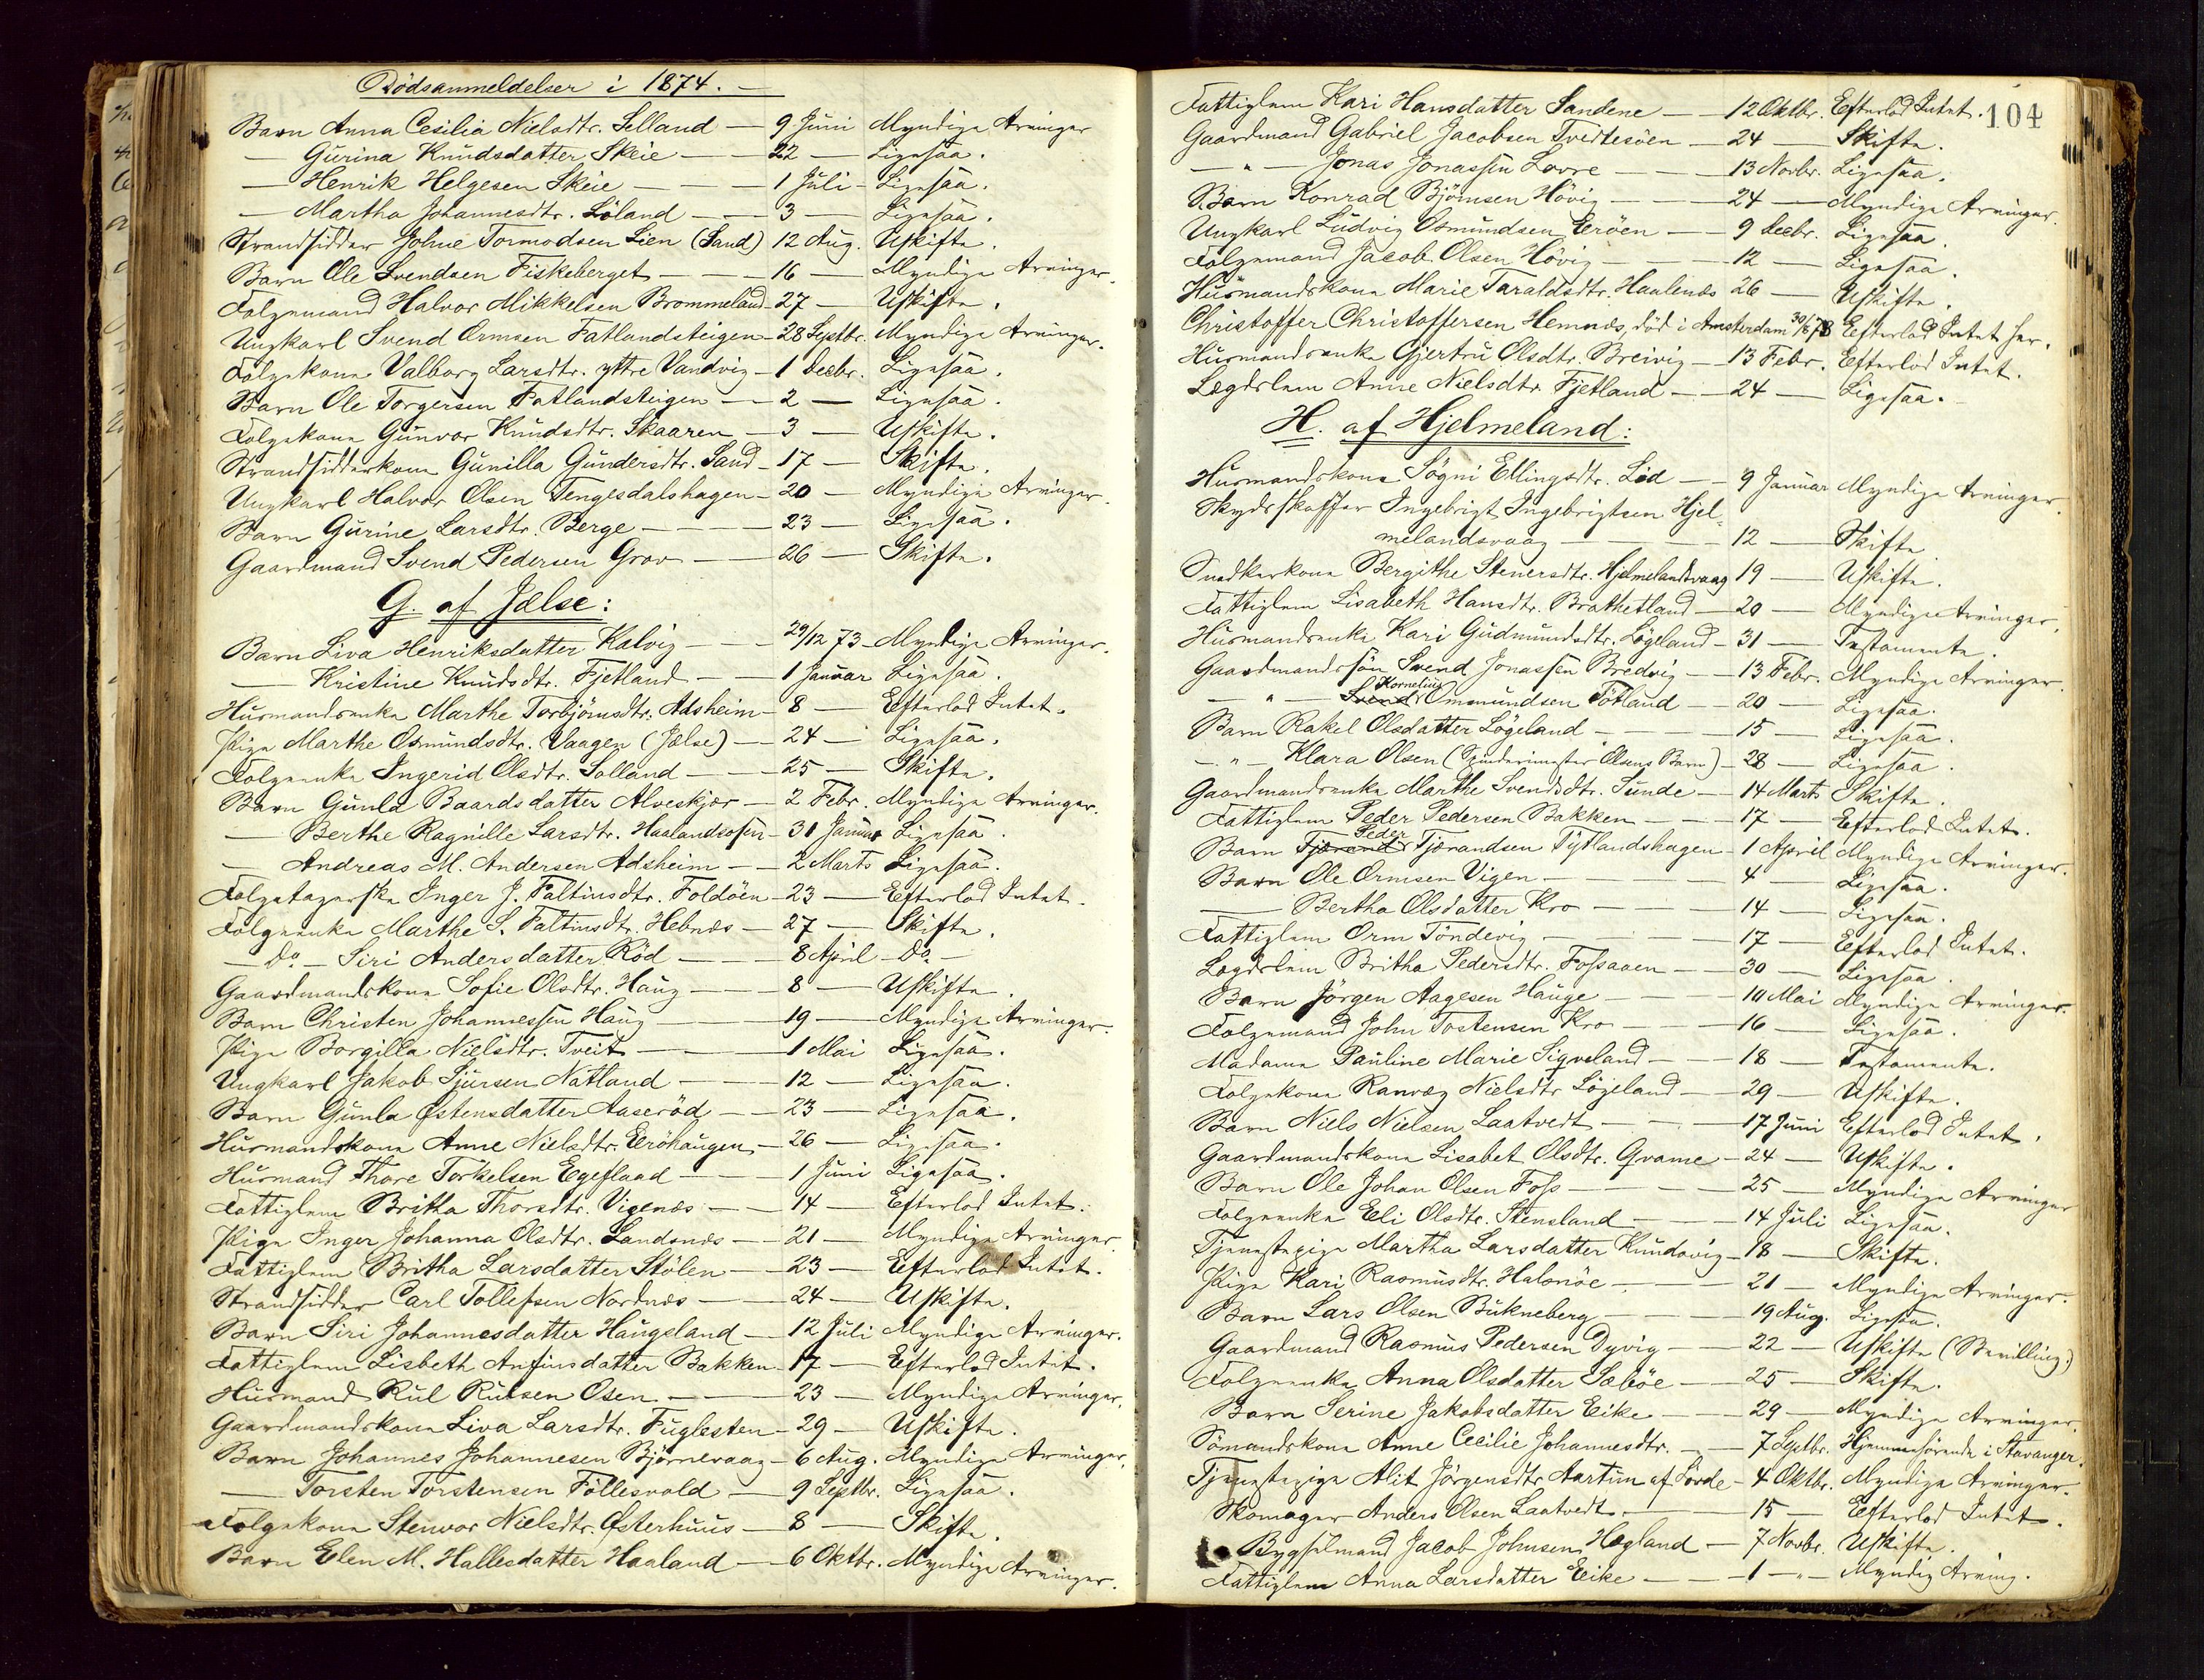 Dödsanmeldelser i 1874. —
Barn Anna Cesilia Nielsdtr. Selland — 9 Juni Myndige Arvinger
— Gurina Knudsdatter Skeie — — 22 — Ligesaa.
— Henrik Helgesen Skeie — — — 1 Juli — Ligesaa.
— Martha Johannesdtr. Löland — — 3 — Ligesaa.
Strandsidder Johne Tormodsen Lien (Sand) 12 Aug. Uskifte.
Barn Ole Svendsen Fiskeberget — — — 16 — Myndige Arvinger.
Folgemand Halvor Mikkelsen Brommeland — 27 — Uskifte.
Ungkarl Svend Ormsen Fatlandsteigen — 28 Septbr. Myndige Arvinger.
Folgekone Valborg Larsdtr. yttre Vandvig — 1 Decbr. Ligesaa.
Barn Ole Torgersen Fatlandsteigen — — 2 — Ligesaa.
Folgekone Gunvor Knudsdtr. Skaaren — 3 — Uskifte.
Strandsidderkone Gunilla Gundersdtr. Sand — 17 — Skifte.
Ungkarl Halvor Olsen Tengesdalshagen — 20 — Myndige Arvinger.
Barn Gurine Larsdtr. Berge — — — 23 — Ligesaa.
Gaardmand Svend Pedersen Grov — — 26 — Skifte.
G. af Jælse:
Barn Liva Henriksdatter Kalvig — — 29/12 73 — Myndige Arvinger.
— Kristine Knudsdtr. Fjetland — — 1 Januar Ligesaa.
Husmandsenke Marthe Torbjörnsdtr. Adsheim — 8 — Efterlod Intet.
Pige Marthe Osmundsdtr. Vaagen (Jælse) — 24 — Ligesaa.
Folgeenke Ingerid Olsdtr. Solland — — — 25 — Skifte.
Barn Gunla Baardsdatter Alveskjær — 2 Febr. Myndige Arvinger.
— Berthe Ragnille Larsdtr. Haalandsosen — 31 Januar Ligesaa.
— Andreas M. Andersen Adsheim — — 2 Marts Ligesaa.
Folgetagerske Inger J. Faltinsdtr. Foldöen — 23 — Efterlod Intet.
Folgeenke Marthe S. Faltinsdtr. Hebnæs — 27 — Skifte.
— Do. — Siri Andersdatter Röd — — — 8 April — Do. —
Gaardmandskone Sofie Olsdtr. Haug — — 8 — Uskifte.
Barn Christen Johannessen Haug — — 19 — Myndige Arvinger.
Pige Borgilla Nielsdtr. Tveit — — — 1 Mai Ligesaa.
Ungkarl Jakob Sjursen Natland — — 12 — Ligesaa.
Barn Gunla Østensdatter Aaseröd — — 23 — Ligesaa.
Husmandskone Anne Nielsdtr. Eeröhaugen — 26 — Ligesaa.
Husmand Thore Torkelsen Egeflaad — — 1 Juni Ligesaa.
Fattiglem Britha Thorsdtr. Vigenæs — — 14 — Efterlod Intet.
Pige Inger Johanna Olsdtr. Landsnæs — 21 — Myndige Arvinger.
Fattiglem Britha Larsdatter Stölen — — 23 — Efterlod Intet.
Strandsidder Carl Tollefsen Nordnæs — 24 — Uskifte.
Barn Siri Johannesdatter Haugsland — 12 Juli Myndige Arvinger.
Fattiglem Lisbeth Anfinsdatter Bakken — 17 — Efterlod Intet.
Husmand Rul Rulsen Osen — — — 23 — Myndige Arvinger.
Gaardmandskone Liva Larsdtr. Fuglesten — 29 — Uskifte.
Barn Johannes Johannesen Björnevaag — 6 Aug. Myndige Arvinger.
— Torsten Torstensen Föllesvold — 9 Septbr. Ligesaa.
Folgekone Stenvor Nielsdtr. Østerhuus — 8 — Skifte.
Barn Elen M. Hallesdatter Haaland — 6 Oktbr. Myndige Arvinger.
104
Fattiglem Kari Hansdatter Sandene — — 12 Oktbr. Efterlod Intet.
Gaardmand Gabriel Jacobsen Tvedtesöen — 24 — Skifte.
— " — Jonas Jonassen Lovre — — — 13 Novbr. Ligesaa.
Barn Konrad Björnsen Hövig — — — 24 — Myndige Arvinger.
Ungkarl Ludvig Osmundsen Eröen — — 9 Decbr. Ligesaa.
Folgemand Jacob Olsen Hövig — — 12 — Ligesaa.
Husmandskone Marie Taraldsdtr. Haalenæs 26 — Uskifte.
Christoffer Christoffersen Hemnæs, död i Amsterdam 30/8 73 Efterlod Intet her.
Husmandsenke Gjertru Olsdtr. Breivig — 13 Febr. Efterlod Intet.
Lægdslem Anne Nielsdtr. Fjetland — — 24 — Ligesaa.
H. af Hjelmeland:
Husmandskone Sögni Ellingsdtr. Lid — — 9 Januar Myndige Arvinger.
Skydsskaffer Ingebrigt Ingebrigtsen Hjel-
melandsvaag — — — 12 — Skifte
Snedkerkone Bergithe Stenersdtr. Hjelmelandsvaag 19 — Uskifte.
Fattiglem Lisabeth Hansdtr. Brathetland — 20 — Myndige Arvinger.
Husmandsenke Kari Gudmundsdtr. Lögeland — 31 — Testamente.
Gaardmandssön Svend Jonassen Bredvig — — 13 Febr. Myndige Arvinger.
— " — Svend Kornelius Omsmundsen Tötland — 20 — Ligesaa.
Barn Rakel Olsdatter Lögeland — — 15 — Ligesaa.
— " — Klara Olsen (Olsens Barn) — 28 — Ligesaa.
Gaardmandsenke Marthe Svendsdtr. Sunde — 14 Marts Skifte.
Fattiglem Peder Pedersen Bakken — — 17 — Efterlod Intet.
Barn Tjærand Peder Tjærandsen Tytlandshagen — 1 April Myndige Arvinger.
Barn Ole Ormsen Vigen — — — 4 — Ligesaa.
— Bertha Olsdatter Kro — — — 14 — Ligesaa.
Fattiglem Orm Töndevig — — — 17 — Efterlod Intet.
Lægdslem Britha Pedersdtr. Fossaaen — — 30 — Ligesaa.
Barn Jörgen Aagesen Hauge — — — 10 Mai Myndige Arvinger.
Folgemand John Tostensen Kro — — 16 — Ligesaa.
Madame Pauline Marie Sigveland — — 18 — Testamente.
Folgekone Ranveg Nielsdtr Löjeland — — 29 — Uskifte.
Barn Niels Nielsen Laatvedt — — — 17 Juni Efterlod Intet.
Gaardmandskone Lisabet Olsdtr. Qvame — 24 — Uskifte.
Barn Ole Johan Olsen Foss — — — 25 — Myndige Arvinger
Folgeenke Eli Olsdtr. Stensland — — 14 Juli Ligesaa.
Tjenestepige Martha Larsdatter Kundsvig — 18 — Skifte.
Pige Kari Rasmusdtr. Halsnöe — — 21 — Myndige Arvinger.
Barn Lars Olsen Bukneberg — — — 19 Aug. Ligesaa.
Gaardmand Rasmus Pedersen Dyvig — — 22 — Uskifte (Bevilling.)
Folgeenke Anna Olsdatter Sæböe — — 25 — Skifte.
Barn Serine Jakobsdatter Eike — — 29 — Myndige Arvinger.
Sömandskone Anne Cecilie Johannesdtr. — — 7 Septbr. Hjemmehörende i Stavanger.
Tjenestepige Alit Jörgensdtr Aartun af Sövde — 4 Oktbr. Myndige Arvinger.
Skomager Anders Olsen Laatvedt — — 15 — Efterlod Intet.
Bygselmand Jacob Johnsen Hægland — 7 Novbr. Uskifte.
Fattiglem Anna Larsdatter Eike — — 1 — " — Myndig Arving.